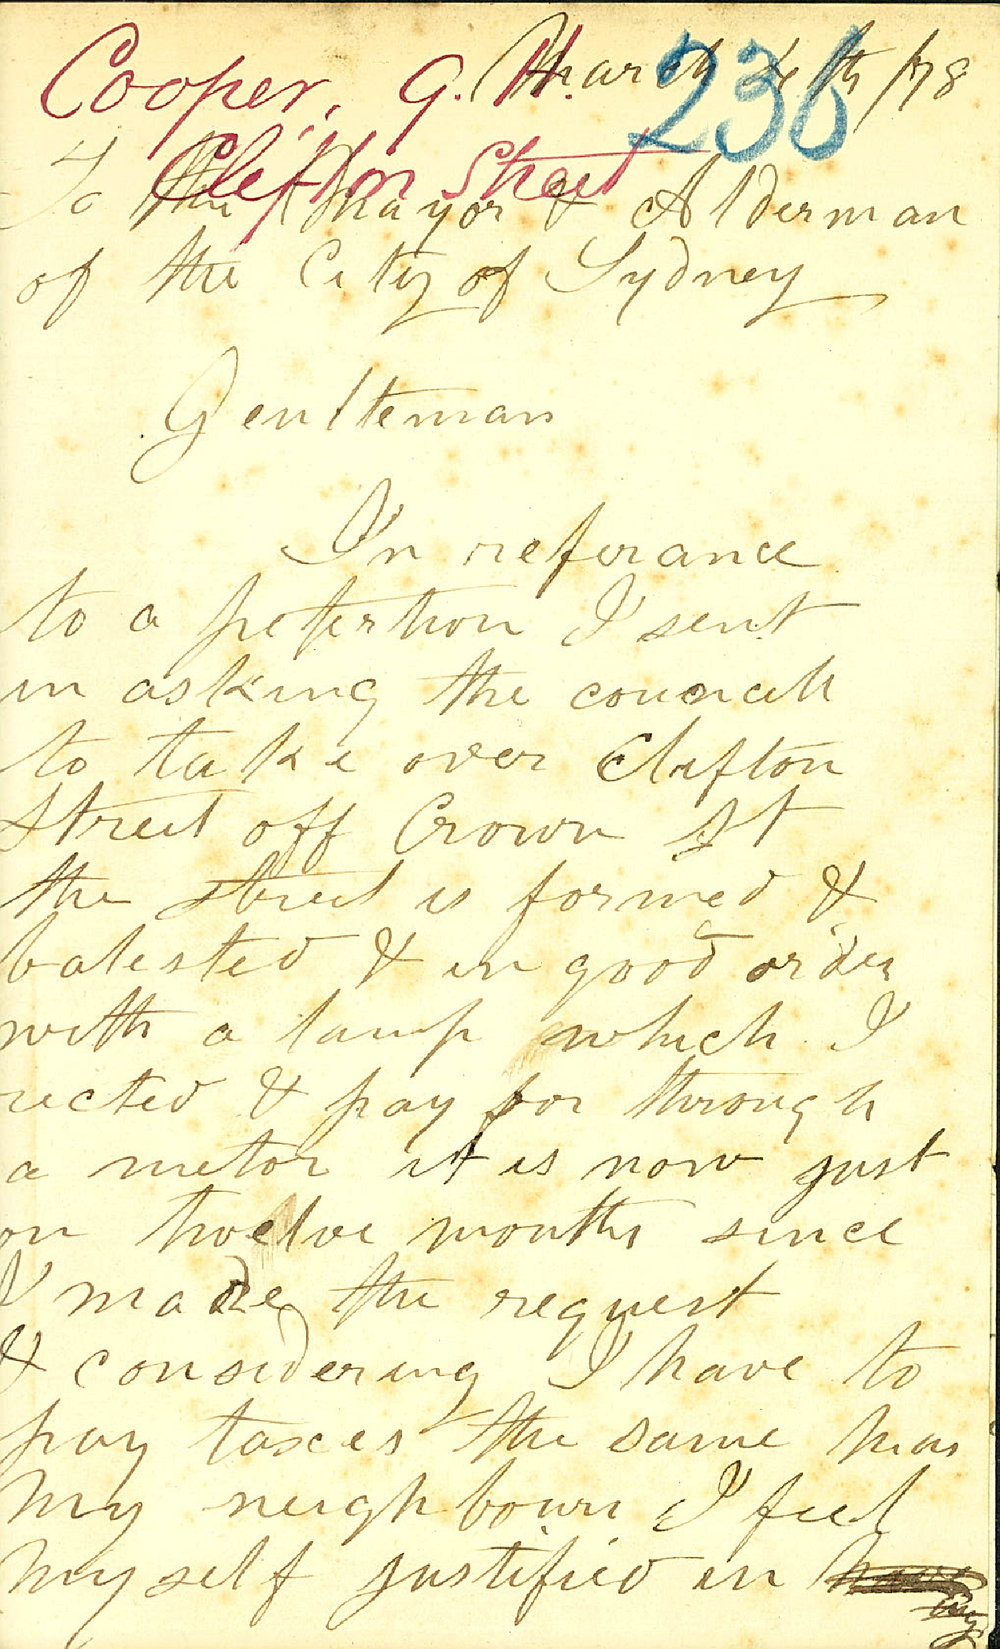 Cooper, G. H.
236
Clifton Street
March 4th /78
To the Mayor & Alderman
of the City of Sydney
Gentleman
In referance
to a petertion I sent
in asking the councill
to take over Clifton
Street off Crown St
the street is formed &
balested & in good order
with a lamp which I
rected & pay for through
a metor it is now just
on twelve months since
I made the request
& considering I have to
pay taxes the same has
my neighbours I feel
myself justified in